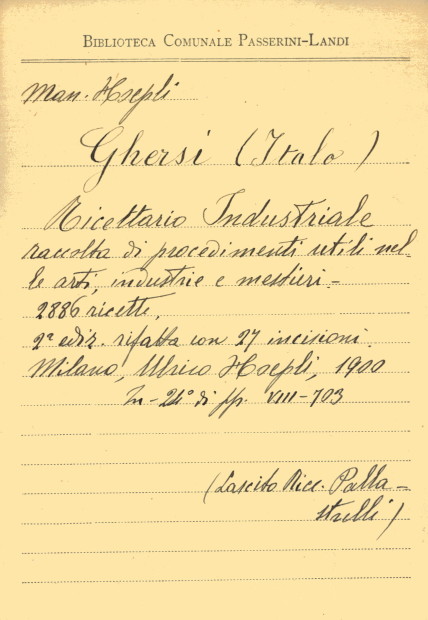 BIBLIOTECA COMUNALE PASSERINI-LANDI
Man. Hoepli
Ghersi (Italo)
Ricettario Industriale
raccolta di procedimenti utili nel-
le arti, industrie e mestieri -
2886 ricette.
2ª ediz. rifatta con 27 incisioni.
Milano, Ulrico Hoepli, 1900
In-24° di pp. VIII-703
(Lascito Ricc. Palla-
strelli)